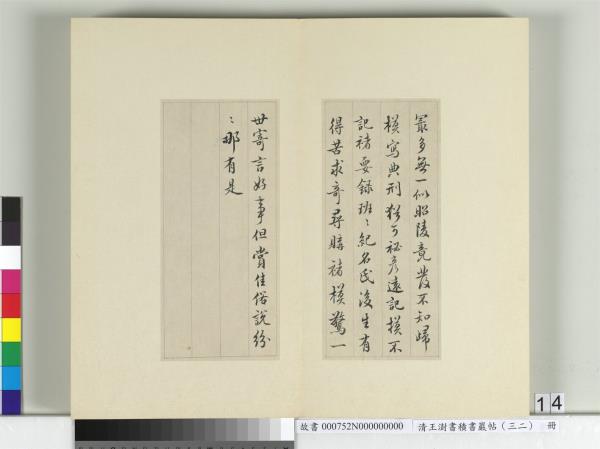 叢多無一似昭陵竟發不知歸
模寫典刑猶可秘彥遠記模不
記褚要錄班〻紀名氏後生有
得苦求奇尋購褚模驚一
世寄言好事但賞佳俗說紛
〻那有是
14
故書 000752N000000000 清王澍書積書巖帖（三二） 冊